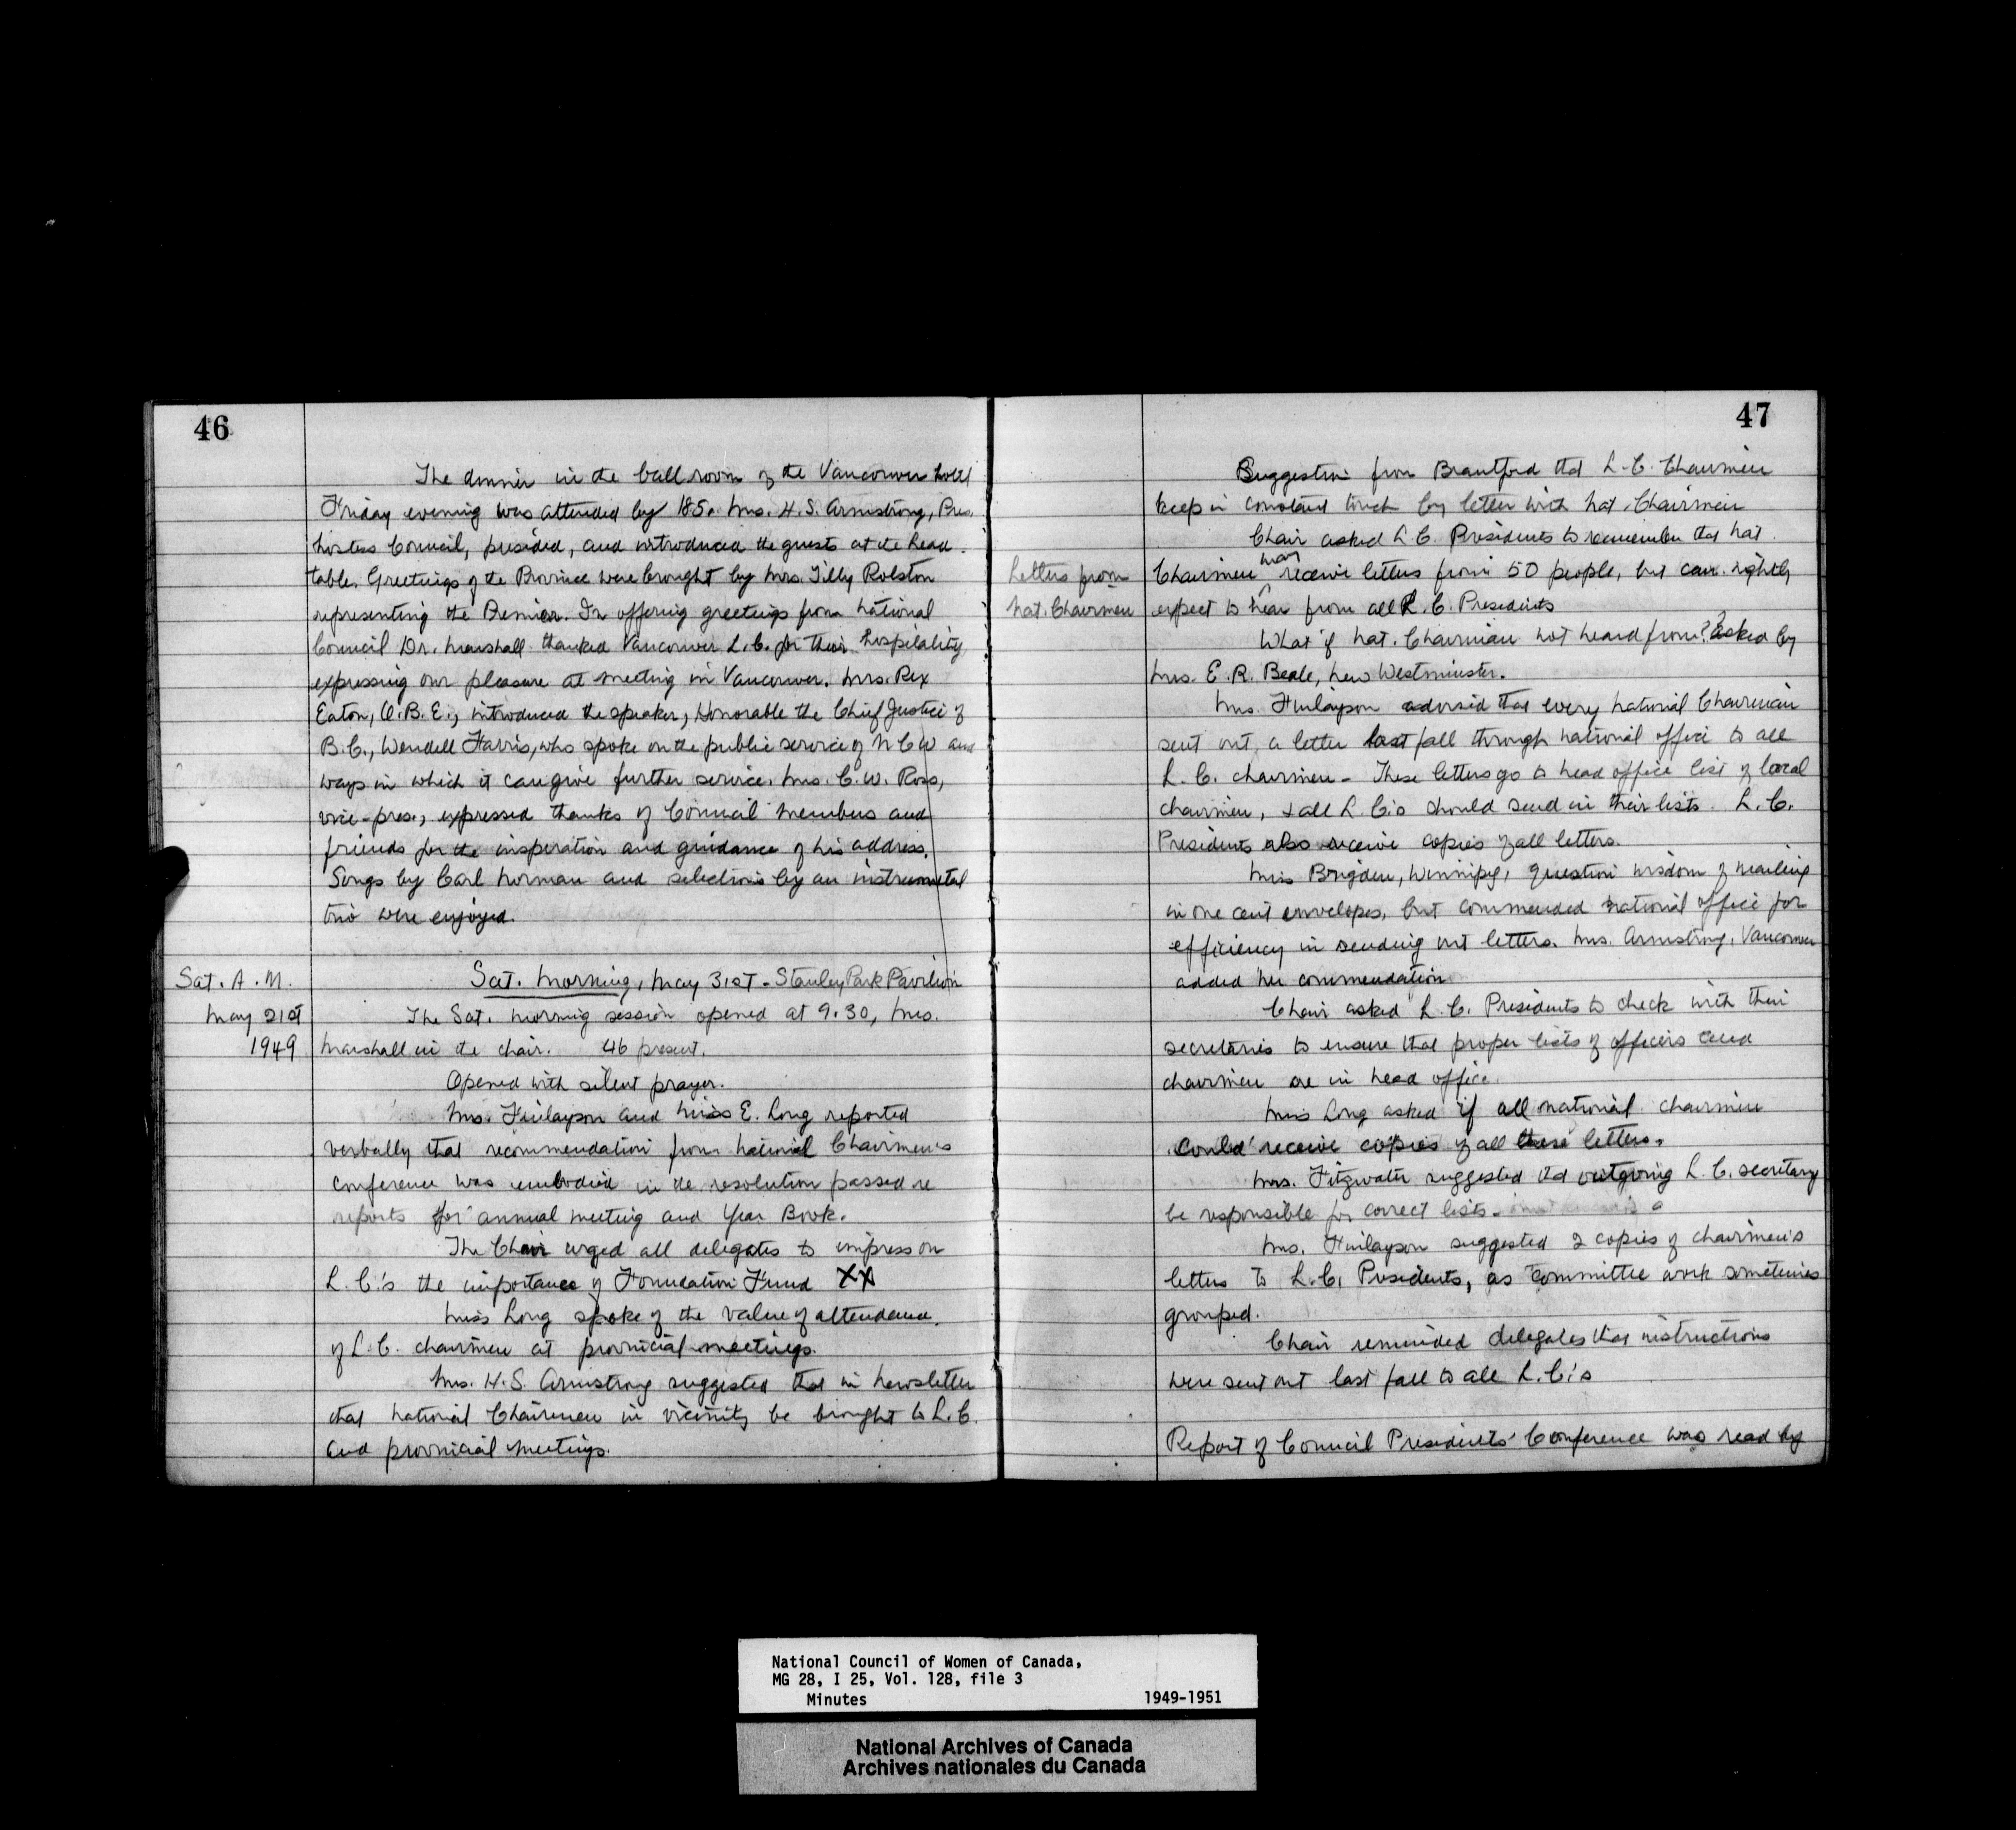 46
The dinner in the ball room of the Vancouver hotel
Friday evening was attended by 185. Mrs. H. S. Armstrong, Pres.
hostess Council, presided, and introduced the guests at the head
table. Greetings of the Province were brought by Mrs. Tilly Rolston
representing the Premier. In offering greetings from National
Council Dr. Marshall thanked Vancouver L.C. for their hospitality
expressing our pleasure at meeting in Vancouver. Mrs. Rex
Eaton, O.B.E., introduced the speaker, Honorable the Chief Justice of
B.C., Wendell Farris, who spoke on the public service of NCW and
ways in which it can give further service. Mrs. C. W. Ross,
vice-pres., expressed thanks of Council members and
friends for the inspiration and guidance of his address.
Songs by Carl Norman and selections by an instrumetal
trio were enjoyed.
Sat. A.M.
May 21st
1949
Sat. Morning, May 31st - Stanley Park Pavilion
The Sat. morning session opened at 9.30, Mrs.
Marshall in the chair. 46 present.
Opened with silent prayer.
Mrs. Finlayson and Miss E. Long reported
verbally that recommendation from National Chairmen's
conference was embodied in the resolution passed re
reports for annual meeting and Year Book.
The Chair urged all delegates to impress on
L.C.'s the importance of Foundation Fund XX
Miss Long spoke of the value of attendance
of L.C. chairmen at provincial meetings.
Mrs. H. S. Armstrong suggested that in Newsletter
that National Chairmen in vicinity be brought to L.C.
and provincial meetings.
47
Suggestion from Brantford that L.C. Chairmen
keep in constant touch by letter with Nat. Chairmen
Chair asked L.C. Presidents to remember that Nat.
Letters from
Nat. Chairmen
Chairmen may receive letters from 50 people, but can rightly
expect to hear from all L.C. Presidents
What if Nat. Chairman not heard from? asked by
Mrs. E. R. Beale, New Westminster.
Mrs. Finlayson advised that every National Chairman
sent out a letter last fall through National office to all
L.C. chairmen - These letters go to head office list of local
chairmen, & all L.C.'s should send in their lists. L.C.
Presidents also receive copies of all letters.
Miss Brigden, Winnipeg, question wisdom of mailing
in one cent envelopes, but commended National office for
efficiency in sending out letters. Mrs. Armstrong, Vancouver
added her commendation
Chair asked L.C. Presidents to check with their
secretaries to ensure that proper lists of officers and
chairmen are in head office.
Miss Long asked if all national chairmen
could receive copies of all these letters.
Mrs. Fitzwater suggested that outgoing L.C. secretary
be responsible for correct lists.
Mrs. Finlayson suggested 2 copies of chairmen's
letters to L.C. Presidents, as committee work sometimes
grouped.
Chair reminded delegates that instructions
were sent out last fall to all L.C.'s
Report of Council Presidents' Conference was read by
National Council of Women of Canada,
MG 28, I 25, Vol. 128, file 3
Minutes 1949-1951
National Archives of Canada
Archives nationales du Canada